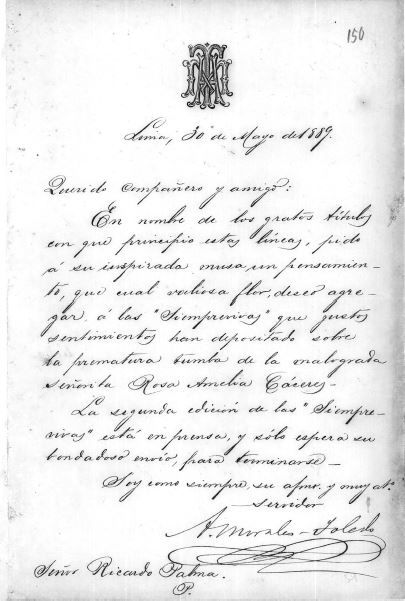 150
Lima, 30 de Mayo de 1889.
Querido Compañero y amigo:
En nombre de los gratos títulos
con que principio estas líneas, pido
á su inspirada musa, un pensamien-
to, que cual valiosa flor, deseo agre-
gar á las "Siemprevivas" que justos
sentimientos han depositado sobre
la prematura tumba de la malograda
señorita Rosa Amelia Cáceres.
La segunda edición de las "Siempre-
vivas" está en prensa, y sólo espera su
bondadoso envío, para terminarse.
Soy como siempre, su afmo. y muy at°.
servidor
A. Morales-Toledo
Señor Ricardo Palma.
P.